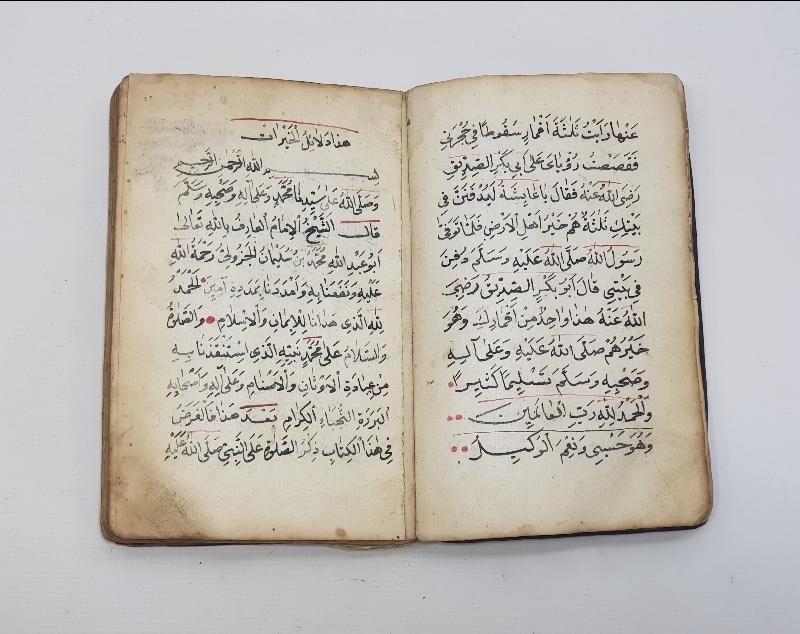 عنها رايت ثلثة اقمار سقوطا في حجرتي
فقصصت رؤياى على ابي بكر الصديق
رضى الله عنه فقال يا عايشة ليدفنن في
بيتك ثلثة هم خير اهل الارض فلما توفى
رسول الله صلى الله عليه وسلم دفن
في بيتي قال ابو بكر الصديق رضى
الله عنه هذا واحد من اقمارك وهو
خيرهم صلى الله عليه وعلى اليه
وصحبه وسلم تسليما كثيرا
والحمد لله رب العالمين
وهو حسبى ونعم الوكيل
هذا دلائل الخيرات
بسم الله الرحمن الرحيم
وصلى الله على سيدنا محمد وعلى اله وصحبه وسلم
قال الشيخ الامام العارف بالله تعالى
ابو عبد الله محمد بن سليمان الجزولى رحمة الله
عليه ونفعنا به وامدنا بمدده امين الحمد
لله الذى هدانا للايمان والاسلام والصلوة
والسلام على محمد نبيه الذى استنقذنا به
من عبادة الاوثان والاصنام وعلى اله واصحابه
البررة النجباء الكرام بعد هذا فالغرض
في هذا الكتاب ذكر الصلوة على النبى صلى الله عليه